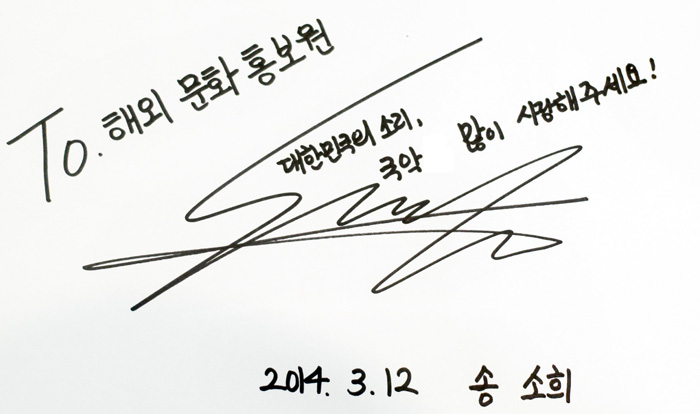 To. 해외 문화 홍보원
대한민국의 소리,
국악 많이 사랑해주세요!
2014. 3. 12 송 소희